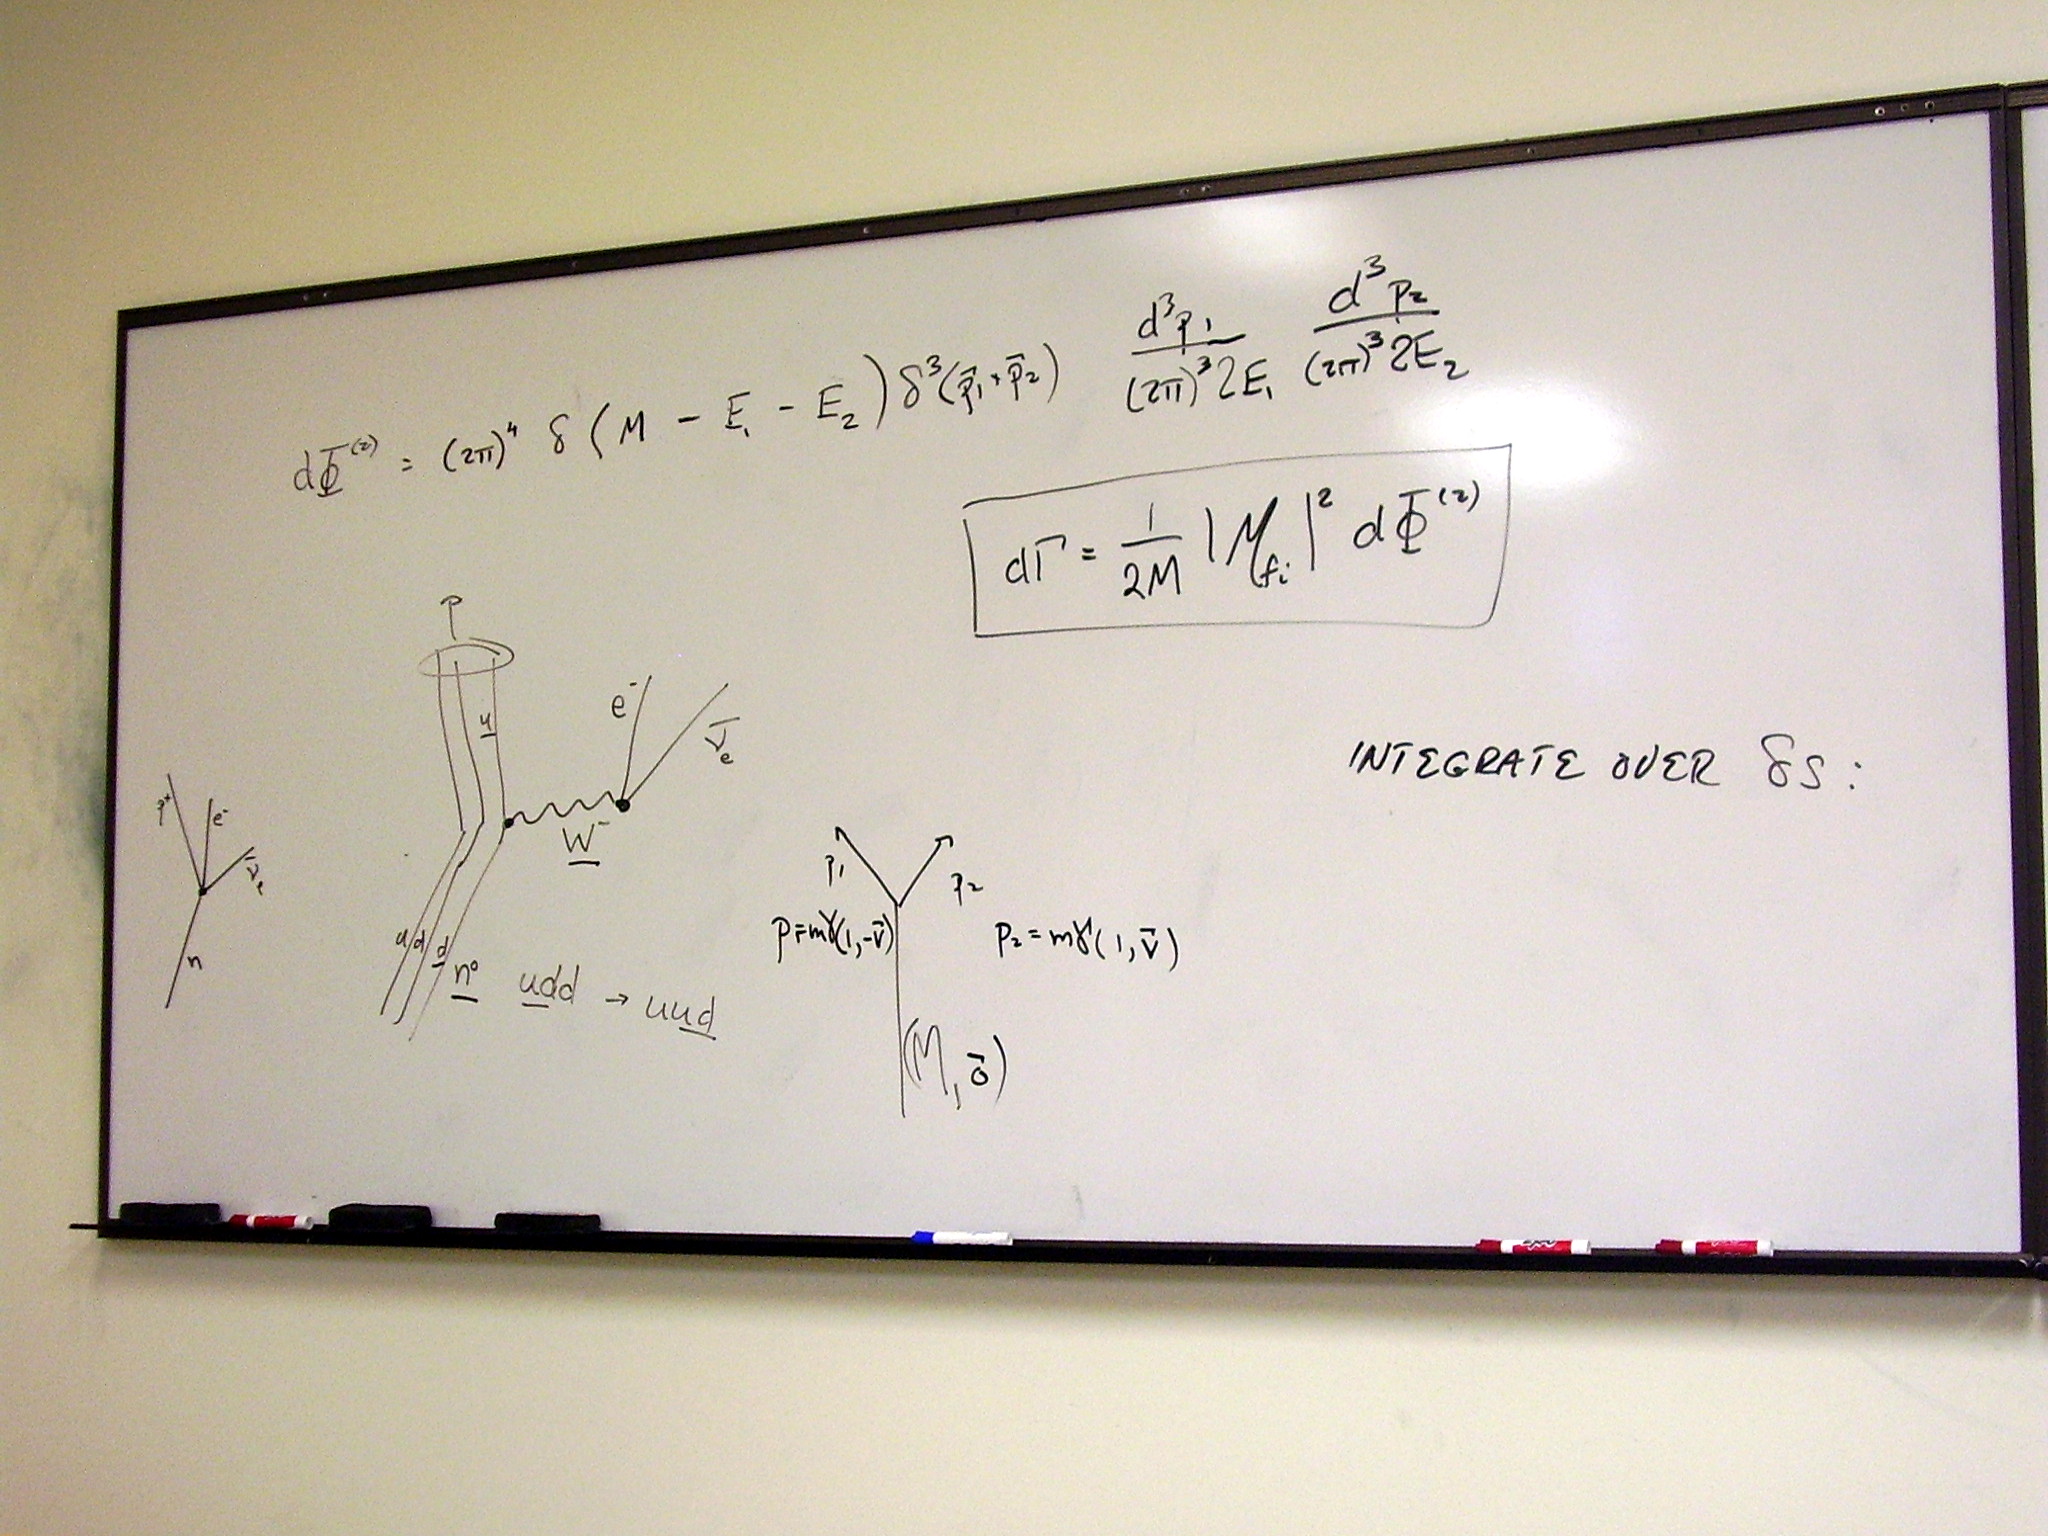 dΦ⁽²⁾ = (2π)⁴ δ(M - E₁ - E₂) δ³(p̄₁+p̄₂) d³p₁/(2π)³2E₁ d³p₂/(2π)³2E₂
dΓ = 1/2M |M_fi|² dΦ⁽²⁾
P
u
e⁻
ν̄e
W⁻
INTEGRATE OVER δs:
p⁺
e⁻
ν̄e
n
u d d
n⁰ udd → uud
p₁
p₂
p₁=mγ(1,-v̄)
p₂=mγ(1,v̄)
(M, 0̄)